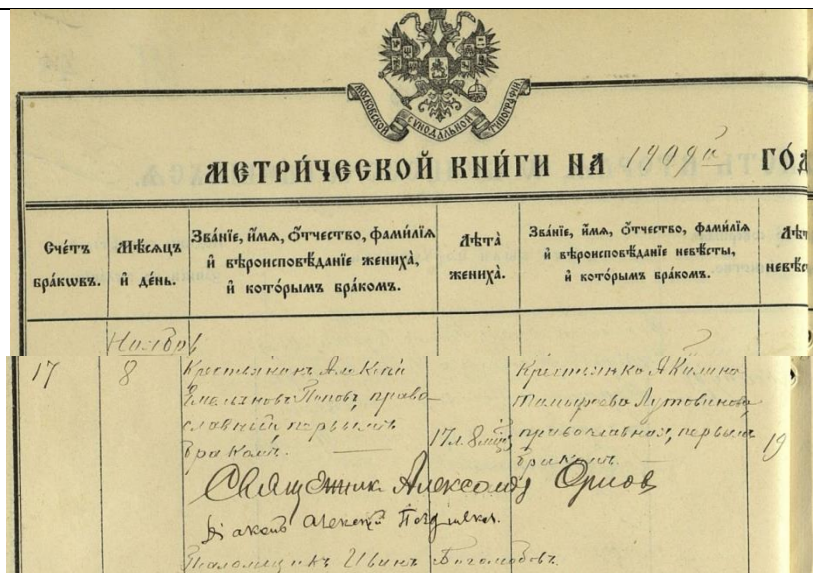 МОСКОВСКОЙ СѴНОДАЛЬНОЙ ТИПОГРАФІИ.
МЕТРИ́ЧЕСКОЙ КНИ́ГИ НА 1909й ГО́Д
Сче́тъ бра́кѡвъ.
Мѣ́сѧцъ и҆ де́нь.
Зва́нїе, и҆́мѧ, ѻ҆́тчество, фами́лїѧ
и҆ вѣроисповѣ́данїе жениха̀,
и҆ кото́рымъ бра́комъ.
Лѣта̀ жениха̀.
Зва́нїе, и҆́мѧ, ѻ҆́тчество, фами́лїѧ
и҆ вѣроисповѣ́данїе невѣ́сты,
и҆ кото́рымъ бра́комъ.
Лѣт
невѣс
Ноябрь
17 8 Крестьянинъ Алексѣй
Емельяновъ Поповъ, право
славный первымъ
бракомъ.
17 л. 8 мѣс
Крестьянка Акилина
Лутовинова
православная, первымъ
бракомъ.
19
Священник Александр Орлов
Діаконъ Алексей
Псаломщикъ Иванъ Боголюбовъ.